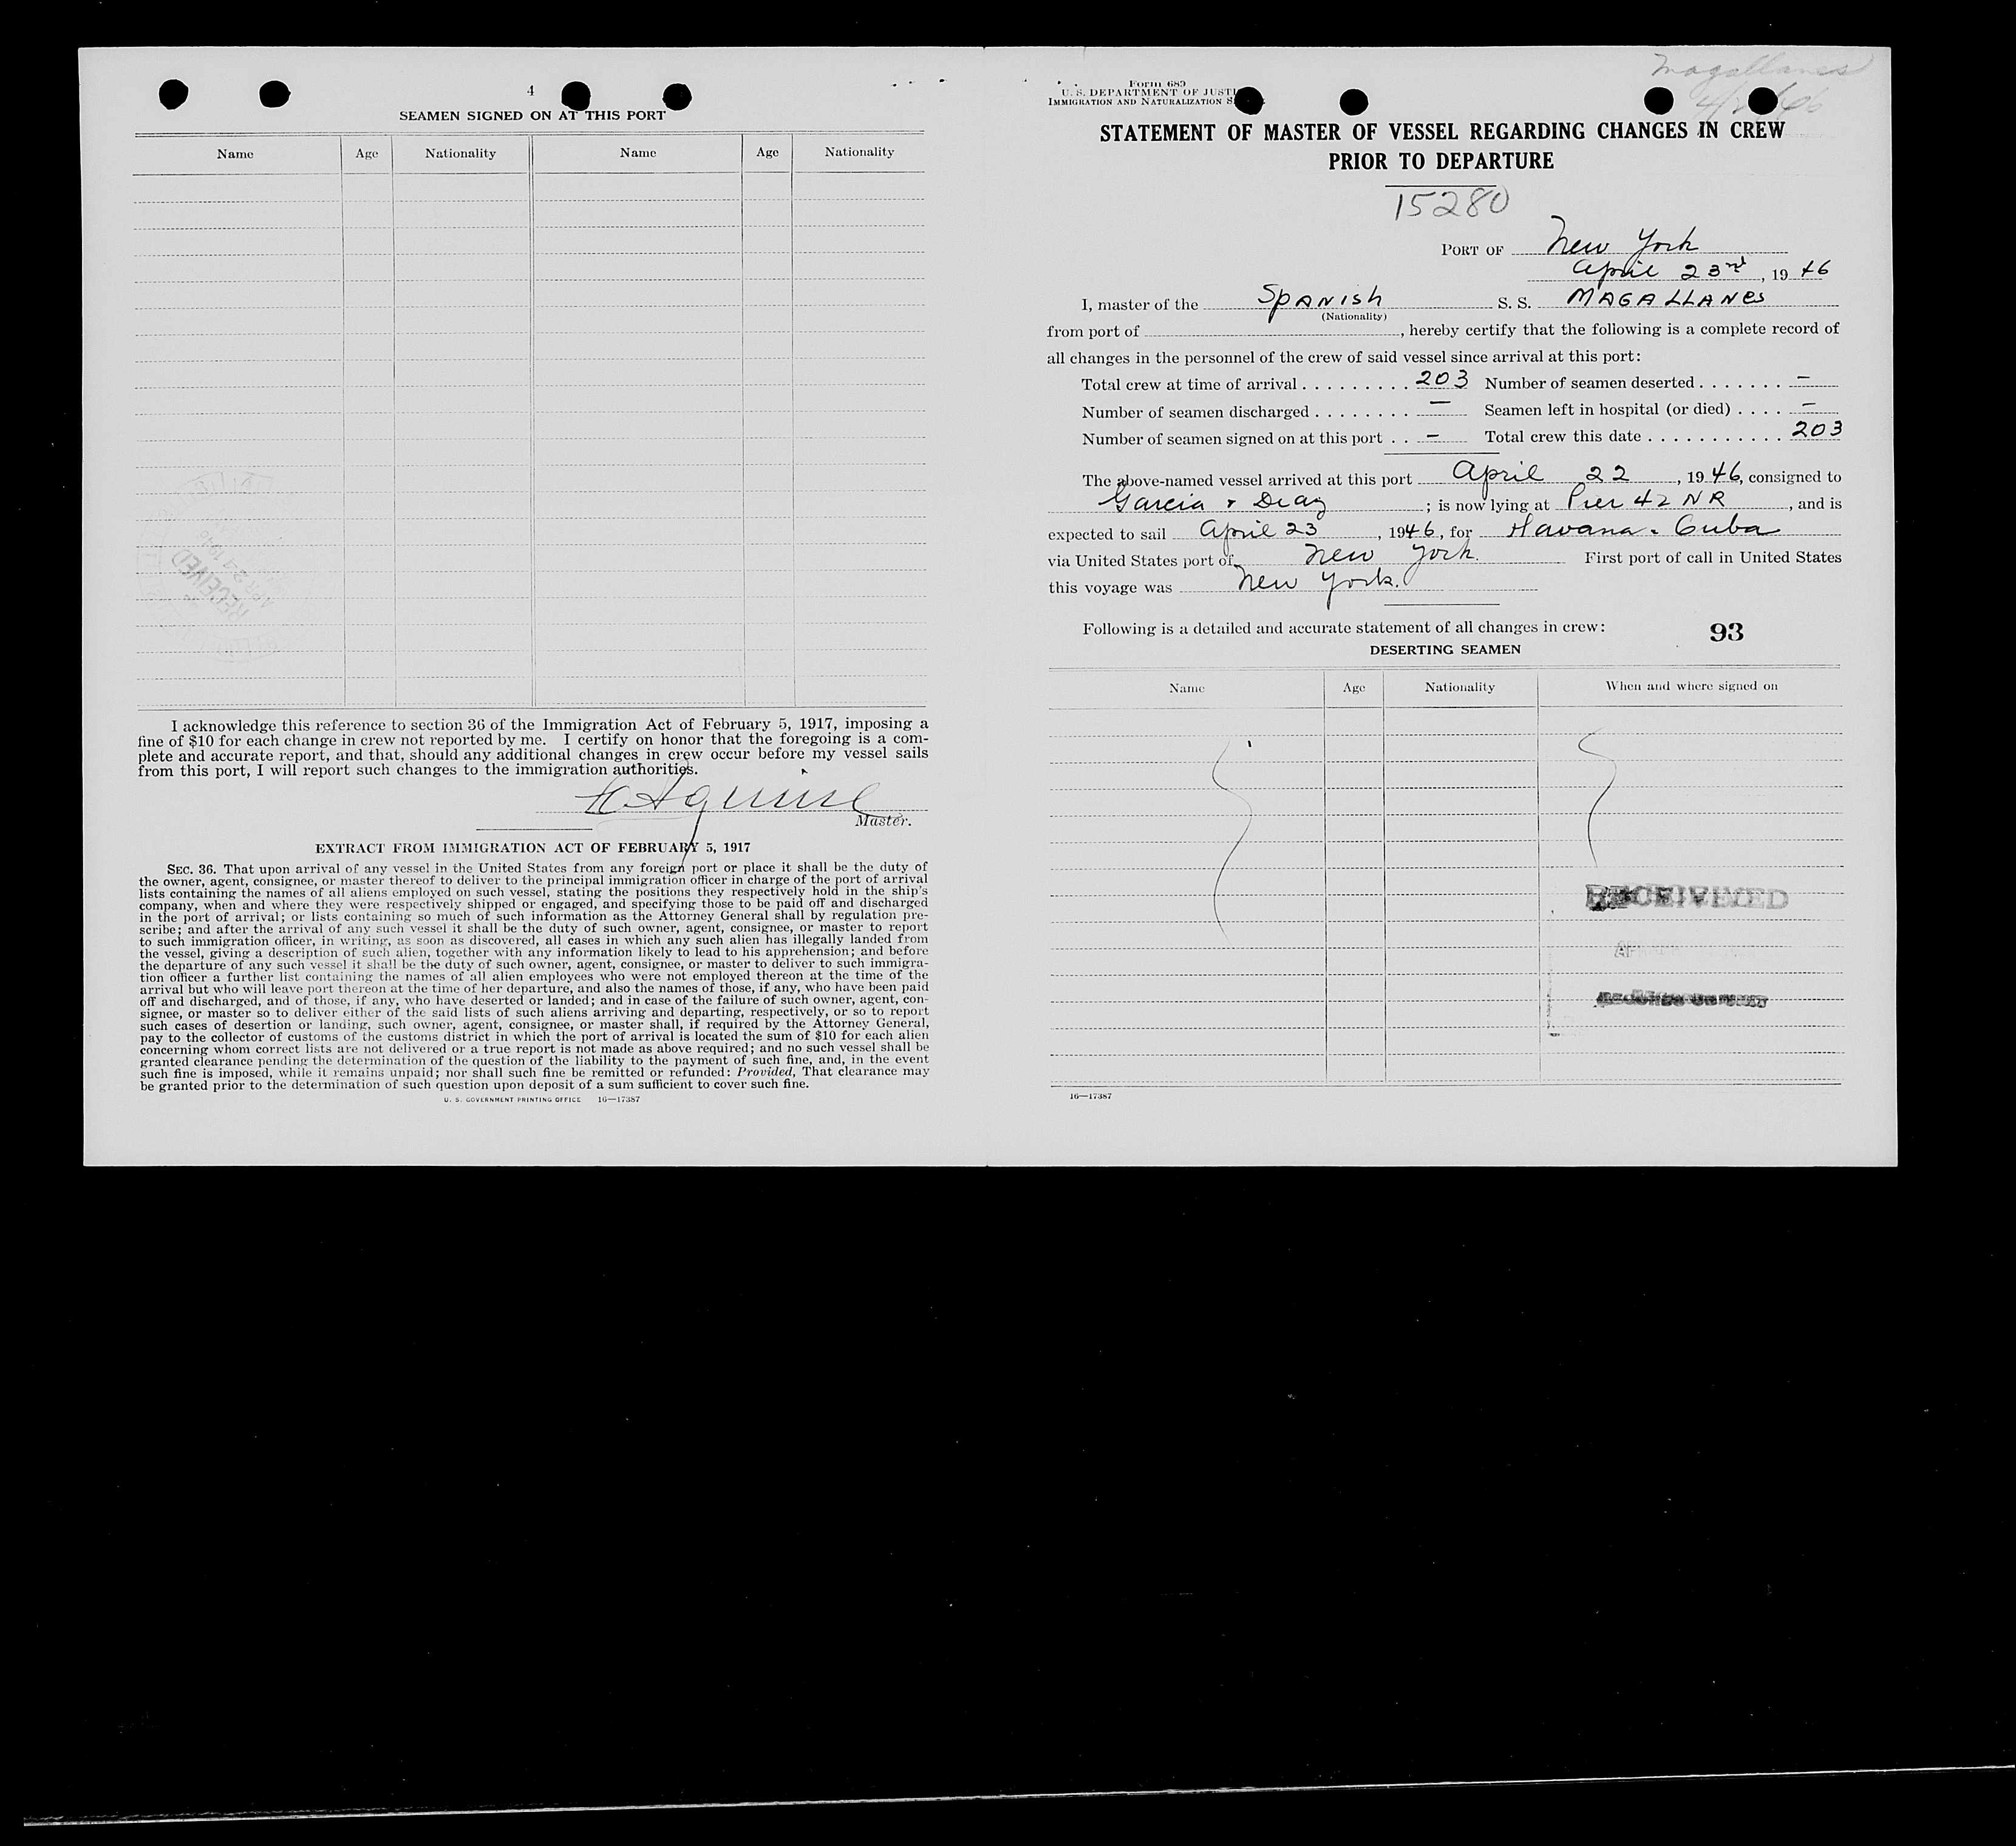 4
SEAMEN SIGNED ON AT THIS PORT
Name Age Nationality Name Age Nationality
RECEIVED
APR 24 1946
I acknowledge this reference to section 36 of the Immigration Act of February 5, 1917, imposing a
fine of $10 for each change in crew not reported by me. I certify on honor that the foregoing is a com-
plete and accurate report, and that, should any additional changes in crew occur before my vessel sails
from this port, I will report such changes to the immigration authorities.
Master.
EXTRACT FROM IMMIGRATION ACT OF FEBRUARY 5, 1917
SEC. 36. That upon arrival of any vessel in the United States from any foreign port or place it shall be the duty of
the owner, agent, consignee, or master thereof to deliver to the principal immigration officer in charge of the port of arrival
lists containing the names of all aliens employed on such vessel, stating the positions they respectively hold in the ship's
company, when and where they were respectively shipped or engaged, and specifying those to be paid off and discharged
in the port of arrival; or lists containing so much of such information as the Attorney General shall by regulation pre-
scribe; and after the arrival of any such vessel it shall be the duty of such owner, agent, consignee, or master to report
to such immigration officer, in writing, as soon as discovered, all cases in which any such alien has illegally landed from
the vessel, giving a description of such alien, together with any information likely to lead to his apprehension; and before
the departure of any such vessel it shall be the duty of such owner, agent, consignee, or master to deliver to such immigra-
tion officer a further list containing the names of all alien employees who were not employed thereon at the time of the
arrival but who will leave port thereon at the time of her departure, and also the names of those, if any, who have been paid
off and discharged, and of those, if any, who have deserted or landed; and in case of the failure of such owner, agent, con-
signee, or master so to deliver either of the said lists of such aliens arriving and departing, respectively, or so to report
such cases of desertion or landing, such owner, agent, consignee, or master shall, if required by the Attorney General,
pay to the collector of customs of the customs district in which the port of arrival is located the sum of $10 for each alien
concerning whom correct lists are not delivered or a true report is not made as above required; and no such vessel shall be
granted clearance pending the determination of the question of the liability to the payment of such fine, and, in the event
such fine is imposed, while it remains unpaid; nor shall such fine be remitted or refunded: Provided, That clearance may
be granted prior to the determination of such question upon deposit of a sum sufficient to cover such fine.
U. S. GOVERNMENT PRINTING OFFICE 16—17387
Magallanes
Form 689
U. S. DEPARTMENT OF JUSTI
IMMIGRATION AND NATURALIZATION S
STATEMENT OF MASTER OF VESSEL REGARDING CHANGES IN CREW
PRIOR TO DEPARTURE
15280
PORT OF New York
April 23rd, 1946
I, master of the Spanish S. S. MAGALLANES
(Nationality)
from port of , hereby certify that the following is a complete record of
all changes in the personnel of the crew of said vessel since arrival at this port:
Total crew at time of arrival . . . . . . . . . 203 Number of seamen deserted . . . . . . . —
Number of seamen discharged . . . . . . . . — Seamen left in hospital (or died) . . . . —
Number of seamen signed on at this port . . — Total crew this date . . . . . . . . . . . 203
The above-named vessel arrived at this port April 22, 1946, consigned to
Garcia & Diaz ; is now lying at Pier 42 NR , and is
expected to sail April 23, 1946, for Havana - Cuba
via United States port of New York. First port of call in United States
this voyage was New York.
Following is a detailed and accurate statement of all changes in crew: 93
DESERTING SEAMEN
Name Age Nationality When and where signed on
RECEIVED
16—17387